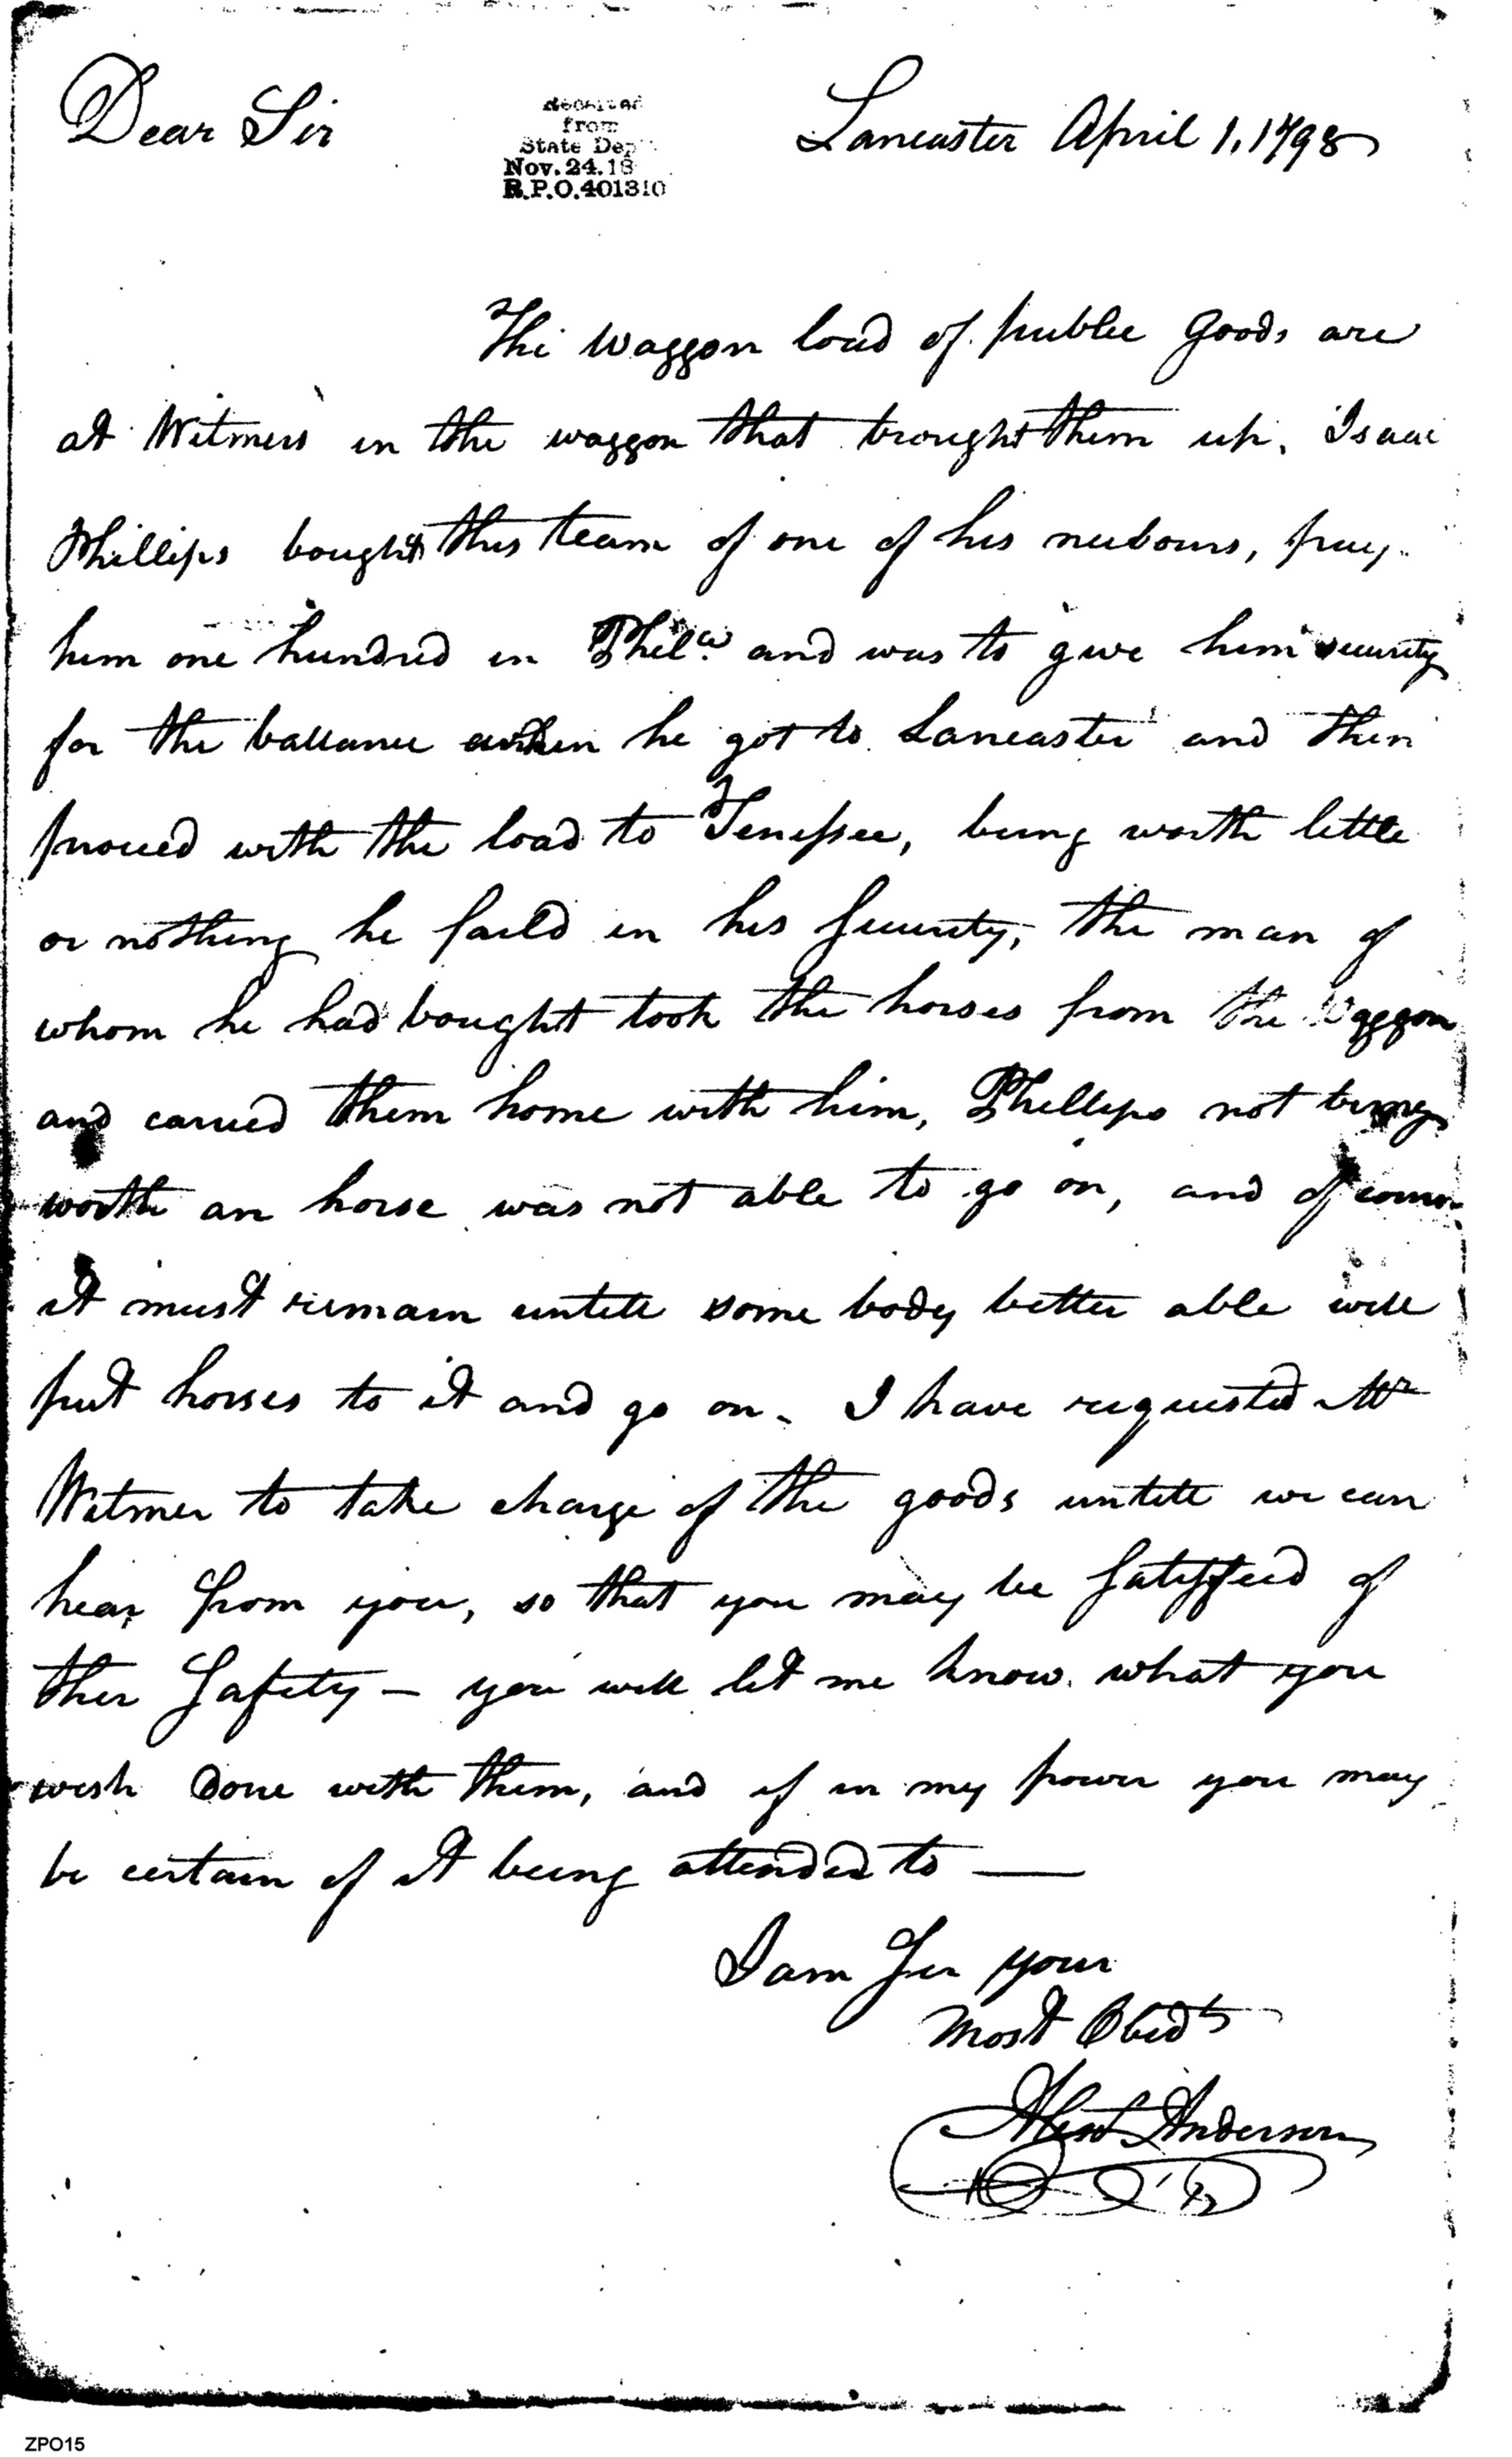 Dear Sir
Lancaster April 1, 1798
Received
from
State Dep
Nov. 24. 18
R.P.O. 401310
The Waggon load of public Goods are
at Witmers in the waggon that brought them up, Isaac
Phillips bought this team of one of his neibours, pay
him one hundred in Phila. and was to give him security
for the ballance when he got to Lancaster and then
proceed with the load to Tenessee, being worth little
or nothing he faild in his Security, the man of
whom he had bought took the horses from the Waggon
and carried them home with him, Phillips not being
worth an horse was not able to go on, and of
it must remain untill some body better able will
put horses to it and go on. I have requested Mr
Witmer to take charge of the goods untill we can
hear from you, so that you may be Satisfied of
ther Safety — you will let me know what you
wish Done with them, and if in my power you may
be certain of it being attended to —
I am Sir your
Most Obedt
Alext Anderson
ZPO15